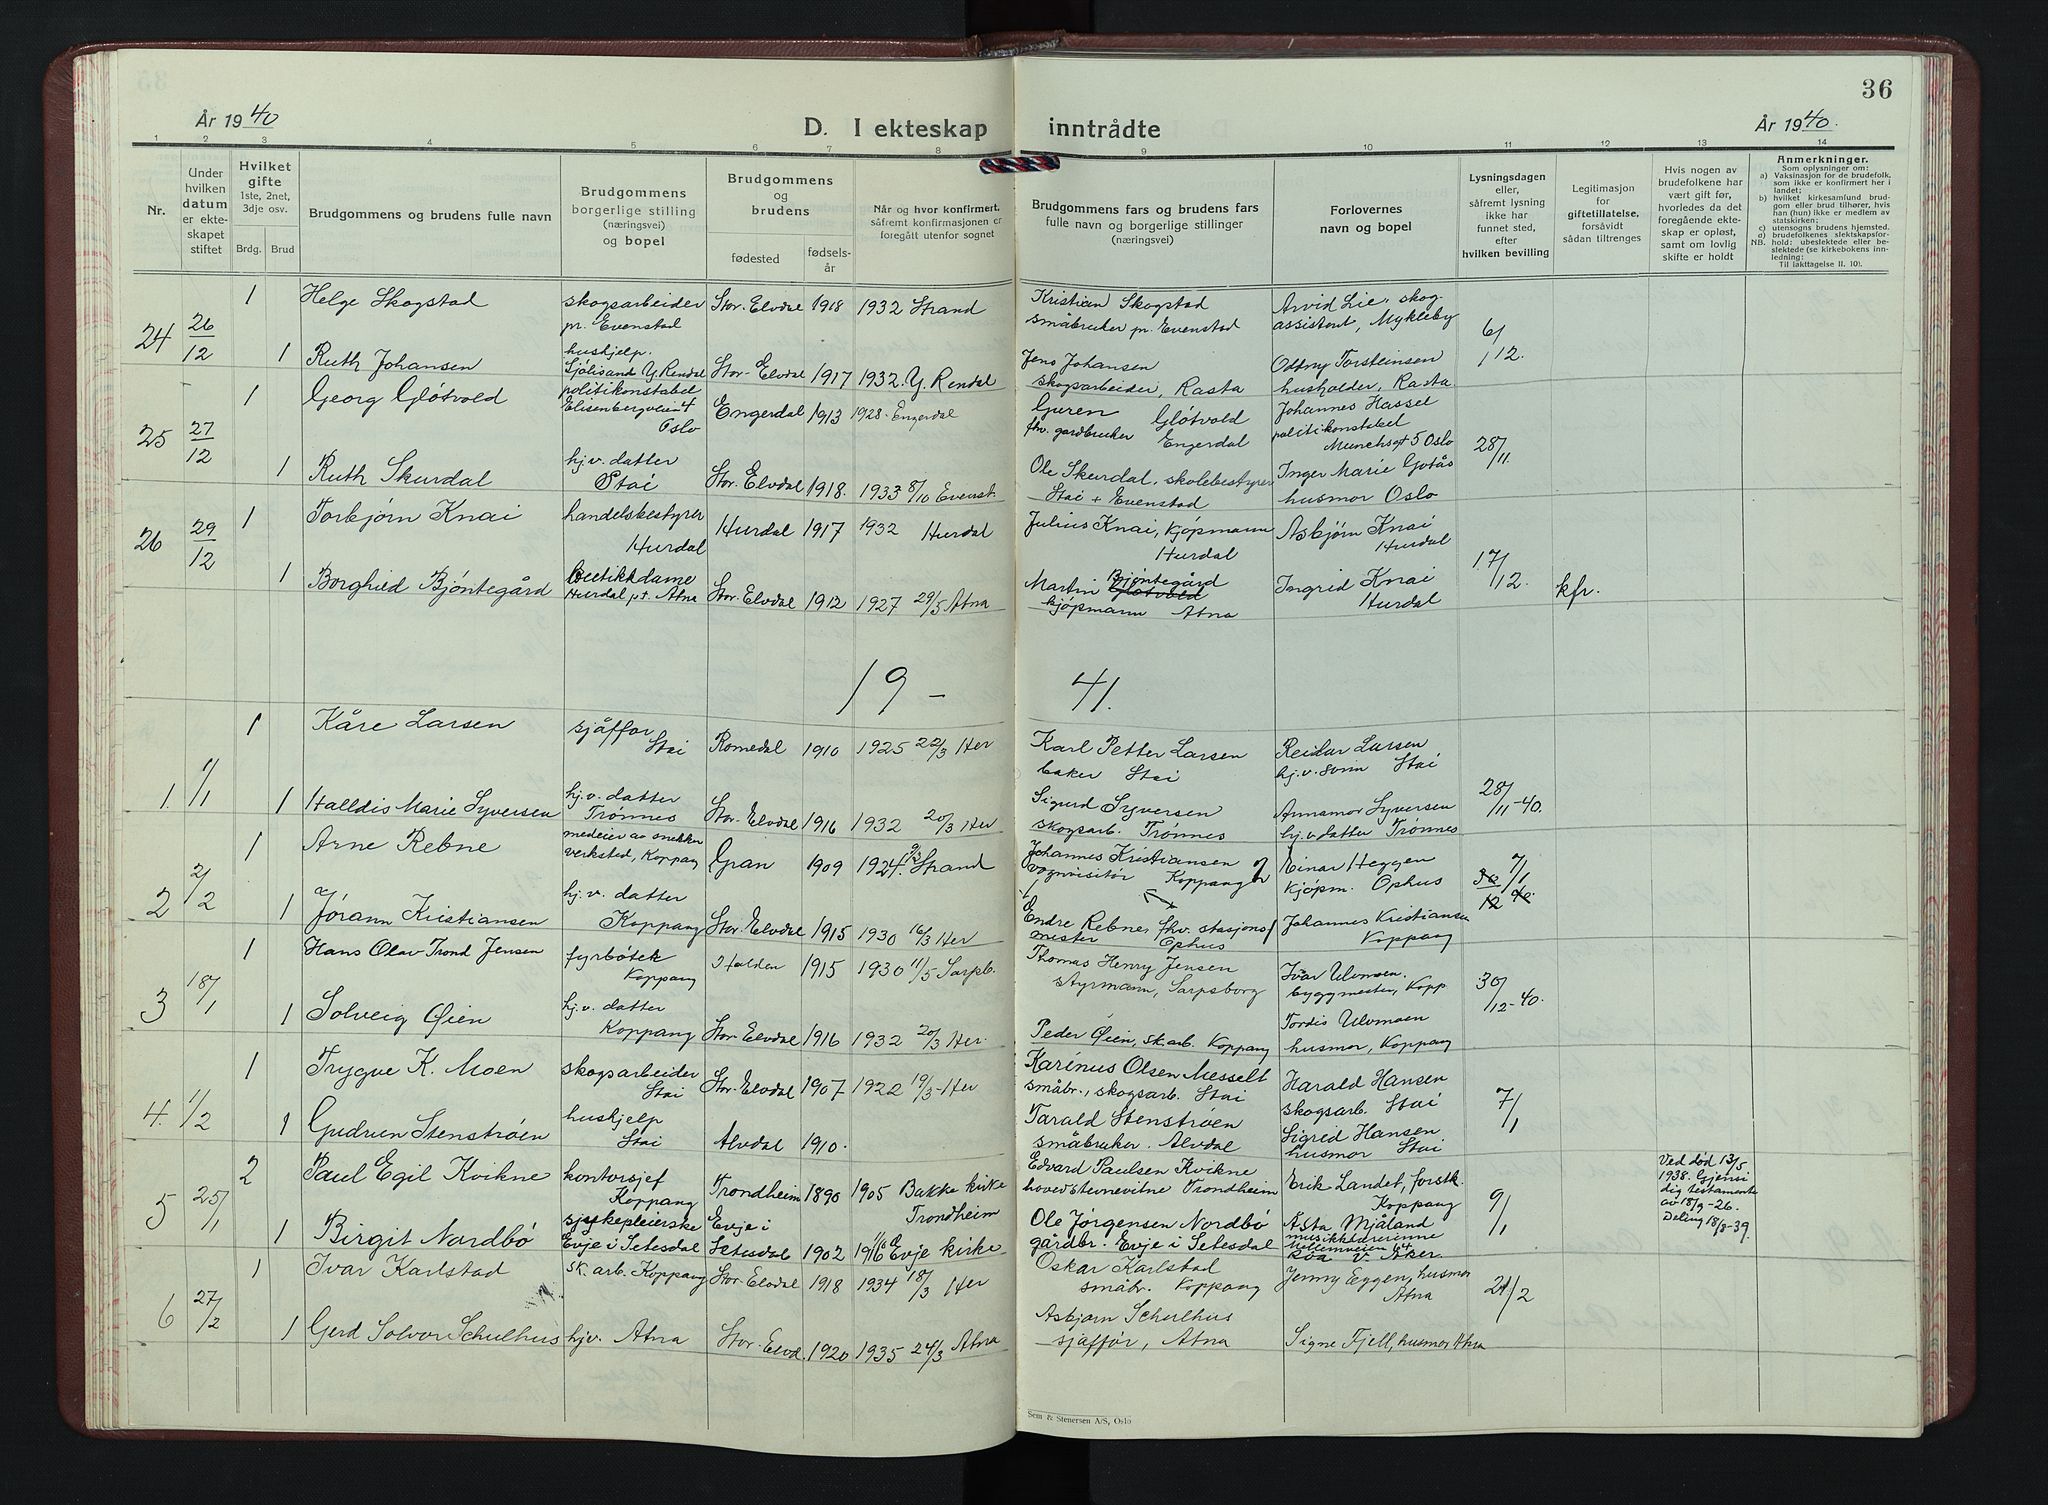 36
År 1940
D. I ekteskap inntrådte
År 1940.
1 2 3 4 5 6 7 8 9 10 11 12 13 14
Nr.
Under hvilken datum er ekteskapet stiftet
Hvilket gifte 1ste, 2net, 3dje osv.
Brdg. Brud
Brudgommens og brudens fulle navn
Brudgommens borgerlige stilling (næringsvei) og bopel
Brudgommens og brudens
fødested fødsels-år
Når og hvor konfirmert. såfremt konfirmasjonen er foregått utenfor sognet
Brudgommens fars og brudens fars fulle navn og borgerlige stillinger (næringsvei)
Forlovernes navn og bopel
Lysningsdagen eller, såfremt lysning ikke har funnet sted, efter hvilken bevilling
Legitimasjon for giftetillatelse, forsåvidt sådan tiltrenges
Hvis nogen av brudefolkene har vært gift før, hvorledes da det foregående ekteskap er opløst, samt om lovlig skifte er holdt
Anmerkninger.
Som oplysninger om:
a) Vaksinasjon for de brudefolk, som ikke er konfirmert her i landet;
b) hvilket kirkesamfund brudgom eller brud tilhører, hvis han (hun) ikke er medlem av statskirken;
c) utensogns brudens hjemsted.
NB. d) brudefolkenes slektskapsforhold: ubeslektede eller beslektede (se kirkebokens innledning: Til iakttagelse II. 10).
24 26/12 1 Helge Skogstad skogsarbeider pr. Evenstad Stor-Elvdal 1918 1932 Strand Kristian Skogstad småbruker pr. Evenstad Arvid Lie, skogassistent, Mykleby 6/12.
1 Ruth Johansen hushjelp. Sjølisand Y. Rendal Stor-Elvdal 1917 1932. Y. Rendal Jens Johansen skogsarbeider, Rasta Oddny Torsteinsen husholder, Rasta
25 27/12 1 Georg Gløtvold politikonstabel Elisenbergveien 4 Oslo Engerdal 1913 1928 - Engerdal Guren Gløtvold fhv. gardbruker Engerdal Johannes Hassel politikonstabel Munchsgt 5 Oslo 28/11.
1 Ruth Skurdal hj.v. datter Stai Stor-Elvdal 1918. 1933 8/10 Evenst. Ole Skurdal, skolebestyrer Stai + Evenstad Inger Marie Gotås husmor Oslo
26 29/12 1 Torbjørn Knai handelsbestyrer Hurdal Hurdal 1917 1932 Hurdal Julius Knai, kjøpmann Hurdal Asbjørn Knai Hurdal 17/12.
1 Borghild Bjøntegård butikkdame Hurdal pt. Atna Stor-Elvdal 1912 1927 29/5 Atna Martin Bjøntegård Gløtvold kjøpmann Atna Ingrid Knai Hurdal kfr.
19 - 41.
1. 1/1 1 Kåre Larsen sjåffør Stai Romedal 1910 1925 22/3 Her Karl Petter Larsen baker Stai Reidar Larsen hj.v. sønn Stai 28/11-40.
1 Halldis Marie Syversen hj.v. datter Trønnes Stor-Elvdal 1916 1932 20/3 Her Sigurd Syversen skogsarb. Trønnes Annamor Syversen hj.v datter Trønnes
2 2/2 1 Arne Rebne medeier av snekkerverksted, Koppang Gran 1909 1924. Strand Johannes Kristiansen vognvisitør Koppang Einar Heggen kjøpm. Ophus 30/12 40. 7/1
1 Jørann Kristiansen hj.v. datter Koppang Stor-Elvdal 1915 1930 16/3 Her Endre Rebne, fhv. stasjonsmester Ophus Johannes Kristiansen Koppang
3 18/1 1 Hans Olav Trond Jensen fyrbøter Koppang Halden 1915 1930 11/5 Sarpb. Thomas Henry Jensen styrmann, Sarpsborg Ivar Ulvmoen. byggmester, Kopp 30/12-40.
1 Solveig Øien hj.v. datter Koppang Stor-Elvdal 1916 1932 20/3 Her. Peder Øien, sk.arb. Koppang Tordis Ulvmoen husmor, Koppang
4. 1/2 1 Trygve K. Moen skogsarbeider Stai Stor-Elvdal 1907 1922 19/3-Her Karinus Olsen Messelt småbr., skogsarb. Stai Harald Hansen skogsarb. Stai 7/1
1 Gudrun Stenstrøen hushjelp Stai Alvdal 1910. Tarald Stenstrøen småbruker. Alvdal Sigrid Hansen husmor Stai
5 25/1 2 Paul Egil Kvikne kontorsjef Koppang Trondheim 1890 1905 Bakke kirke Trondheim Edvard Paulsen Kvikne hovedstevnevitne Trondheim Erik Landet, forstk. Koppang 9/1 Ved død 13/5 1938. Gjensidig testamente av 18/9-26. Deling 18/8-39.
1 Birgit Nordbø sykepleierske Evje i Setesdal Evje i Setesdal 1902 1916 Evje kirke Ole Jørgensen Nordbø gårdbr. Evje i Setesdal Asta Mjåland musikklærerinne Ullernveien 64 Røa V. Aker.
6 27/2 1 Ivar Karlstad sk. arb. Koppang Stor-Elvdal 1918 1934 18/3 Her Oskar Karlstad småbr. Koppang Jenny Eggen, husmor Atna 21/2
1 Gerd Solvor Schulhus hjv. Atna Stor-Elvd. 1920 1935 24/3 Atna Asbjørn Schulhus sjåffør, Atna Signe Fjell, husmor Atna
Sem & Stenersen A/S, Oslo